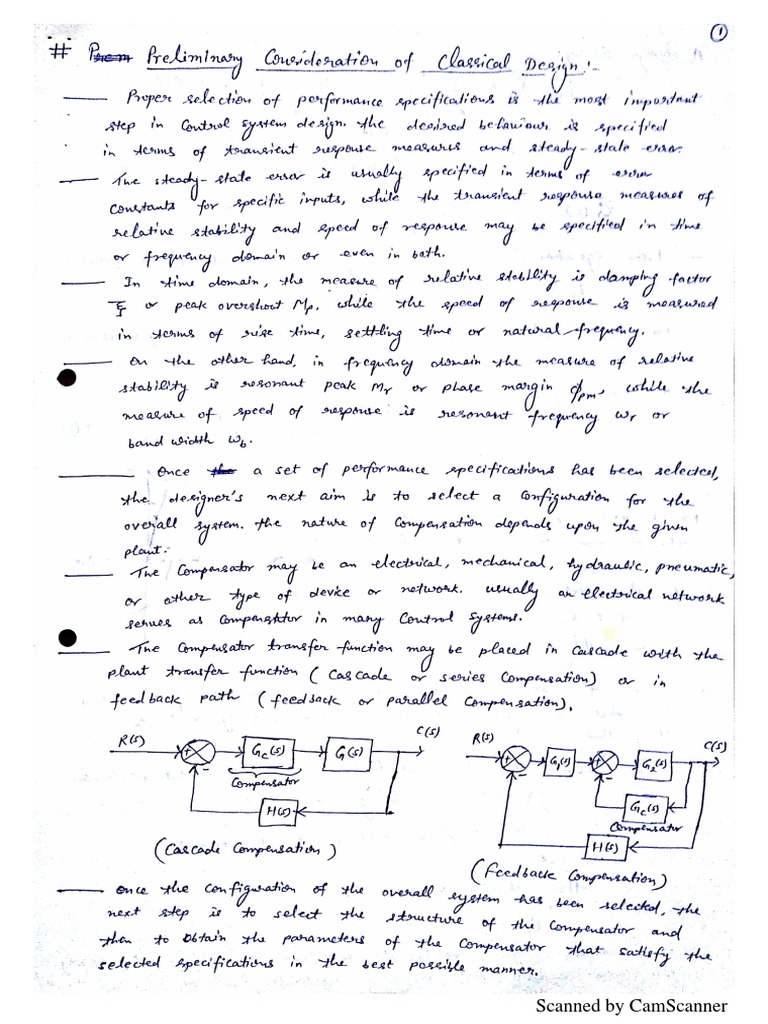 ①
# Preliminary Consideration of Classical Design:-
Proper selection of performance specifications is the most important
step in control system design. The desired behaviour is specified
in terms of transient response measures and steady-state error.
The steady-state error is usually specified in terms of error
constants for specific inputs, while the transient response measures of
relative stability and speed of response may be specified in time
or frequency domain or even in both.
In time domain, the measure of relative stability is damping factor
ξ or peak overshoot Mp, while the speed of response is measured
in terms of rise time, settling time or natural frequency.
On the other hand, in frequency domain the measure of relative
stability is resonant peak Mr or phase margin ϕpm, while the
measure of speed of response is resonant frequency ωr or
band width ωb.
Once a set of performance specifications has been selected,
the designer's next aim is to select a configuration for the
overall system. The nature of compensation depends upon the given
plant.
The compensator may be an electrical, mechanical, hydraulic, pneumatic,
or other type of device or network. Usually an electrical network
serves as compensator in many control systems.
The compensator transfer function may be placed in cascade with the
plant transfer function (cascade or series compensation) or in
feedback path (feedback or parallel compensation).
R(s) + - Gc(s) G(s) C(s)
Compensator
H(s)
(Cascade Compensation)
R(s) + - G1(s) + - G2(s) C(s)
Gc(s)
Compensator
H(s)
(Feedback Compensation)
Once the configuration of the overall system has been selected, the
next step is to select the structure of the compensator and
then to obtain the parameters of the compensator that satisfy the
selected specifications in the best possible manner.
Scanned by CamScanner